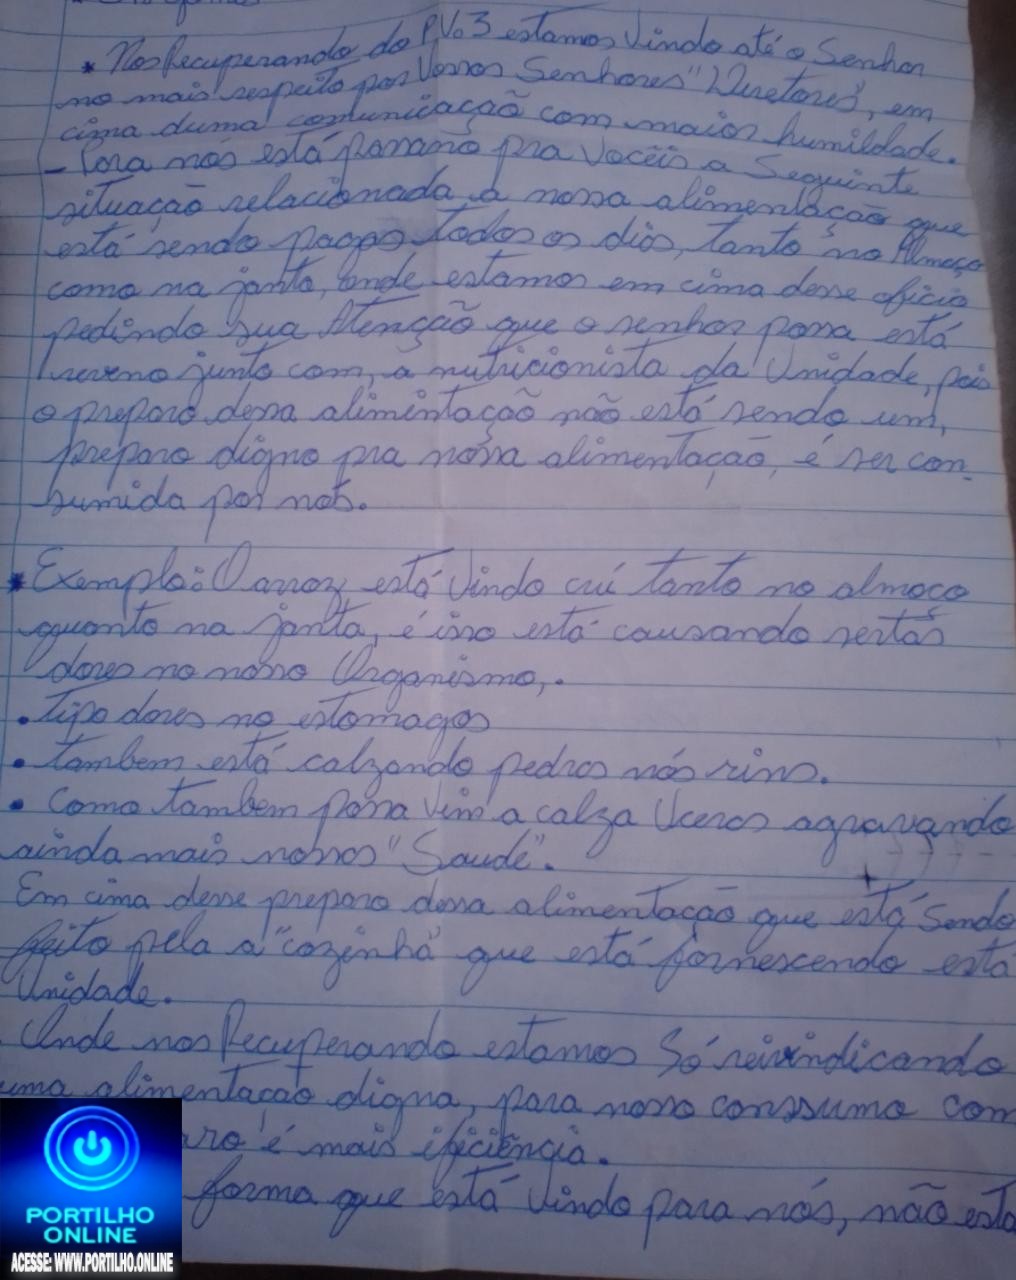 * Nos Recuperando do PV.3 estamos vindo até o Senhor
no mais respeito por Vossos Senhores "Diretores", em
cima duma comunicação com maior humildade.
- Vora nós está passano pra vocêis a Seguinte
situação relacionada a nossa alimentação que
está sendo pagas todos os dias, tanto no Almoço
como na janta, onde estamos em cima desse oficio
pedindo sua Atenção que o senhor possa está
reveno junto com, a nutricionista da Unidade, pois
o preparo dessa alimintação não está sendo um,
preparo digno pra nossa alimentação, é ser con-
sumida por nos.
* Exemplo: O arroz está vindo crú tanto no almoço
quanto na janta, é isso está causando sertas
dores no nosso Organismo,.
• Tipo dores no estomagos
• também está calzando pedras nós rins.
• Como também possa vim a calza Uceros agravando
ainda mais nossos "Saude".
Em cima desse preparo dessa alimentação que está sendo
feito pela a "cozinha" que está fornescendo está
Unidade.
Onde nos Recuperando estamos Só reivindicando
uma alimentação digna, para nosso conssumo com
aro é mais ificiência.
forma que está vindo para nós, não esta
PORTILHO
ONLINE
ACESSE: WWW.PORTILHO.ONLINE